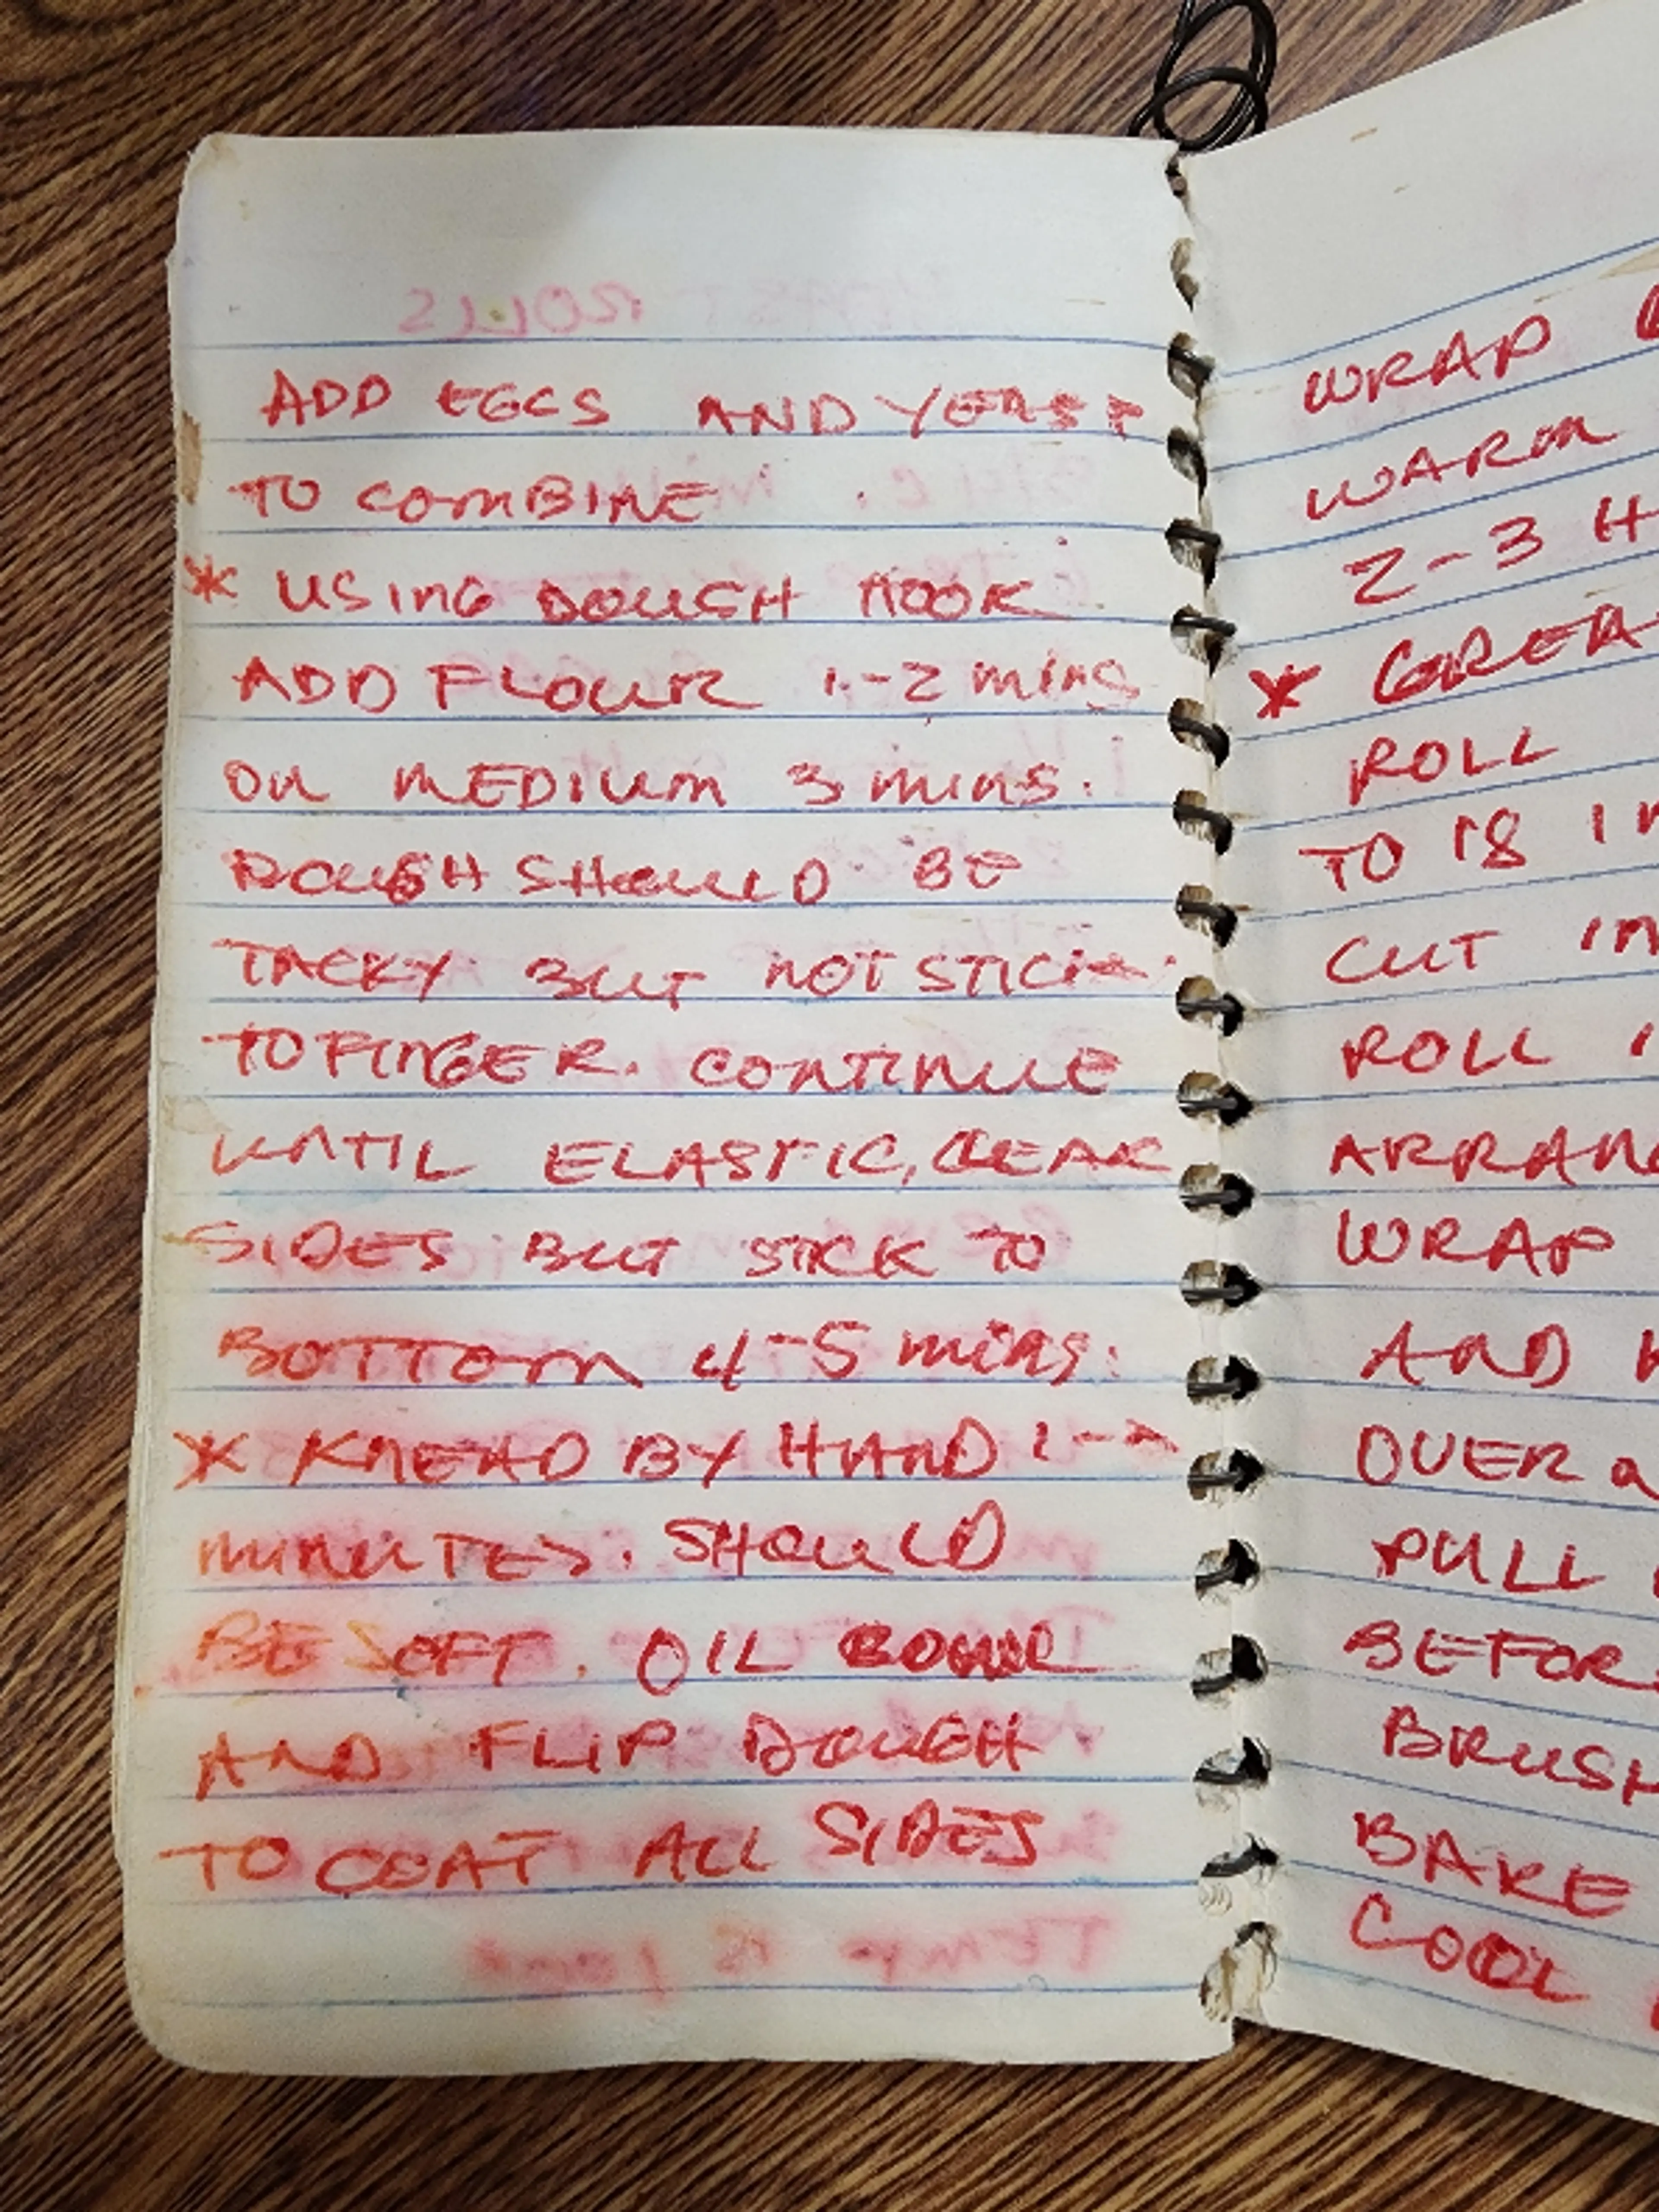 ADD EGGS AND YEAST
TO COMBINE
* USING DOUGH HOOK
ADD FLOUR 1-2 mins
ON MEDIUM 3 mins.
DOUGH SHOULD BE
TACKY BUT NOT STICK
TO FINGER. CONTINUE
UNTIL ELASTIC, CLEAR
SIDES BUT STICK TO
BOTTOM 4-5 mins.
* KNEAD BY HAND 1-2
MINUTES. SHOULD
BE SOFT. OIL BOWL
AND FLIP DOUGH
TO COAT ALL SIDES
WRAP
WARM
2-3 H
* GREA
ROLL
TO 18 IN
CUT IN
ROLL
ARRANG
WRAP
AND
OVER
PULL
BEFOR
BRUSH
BAKE
COOL